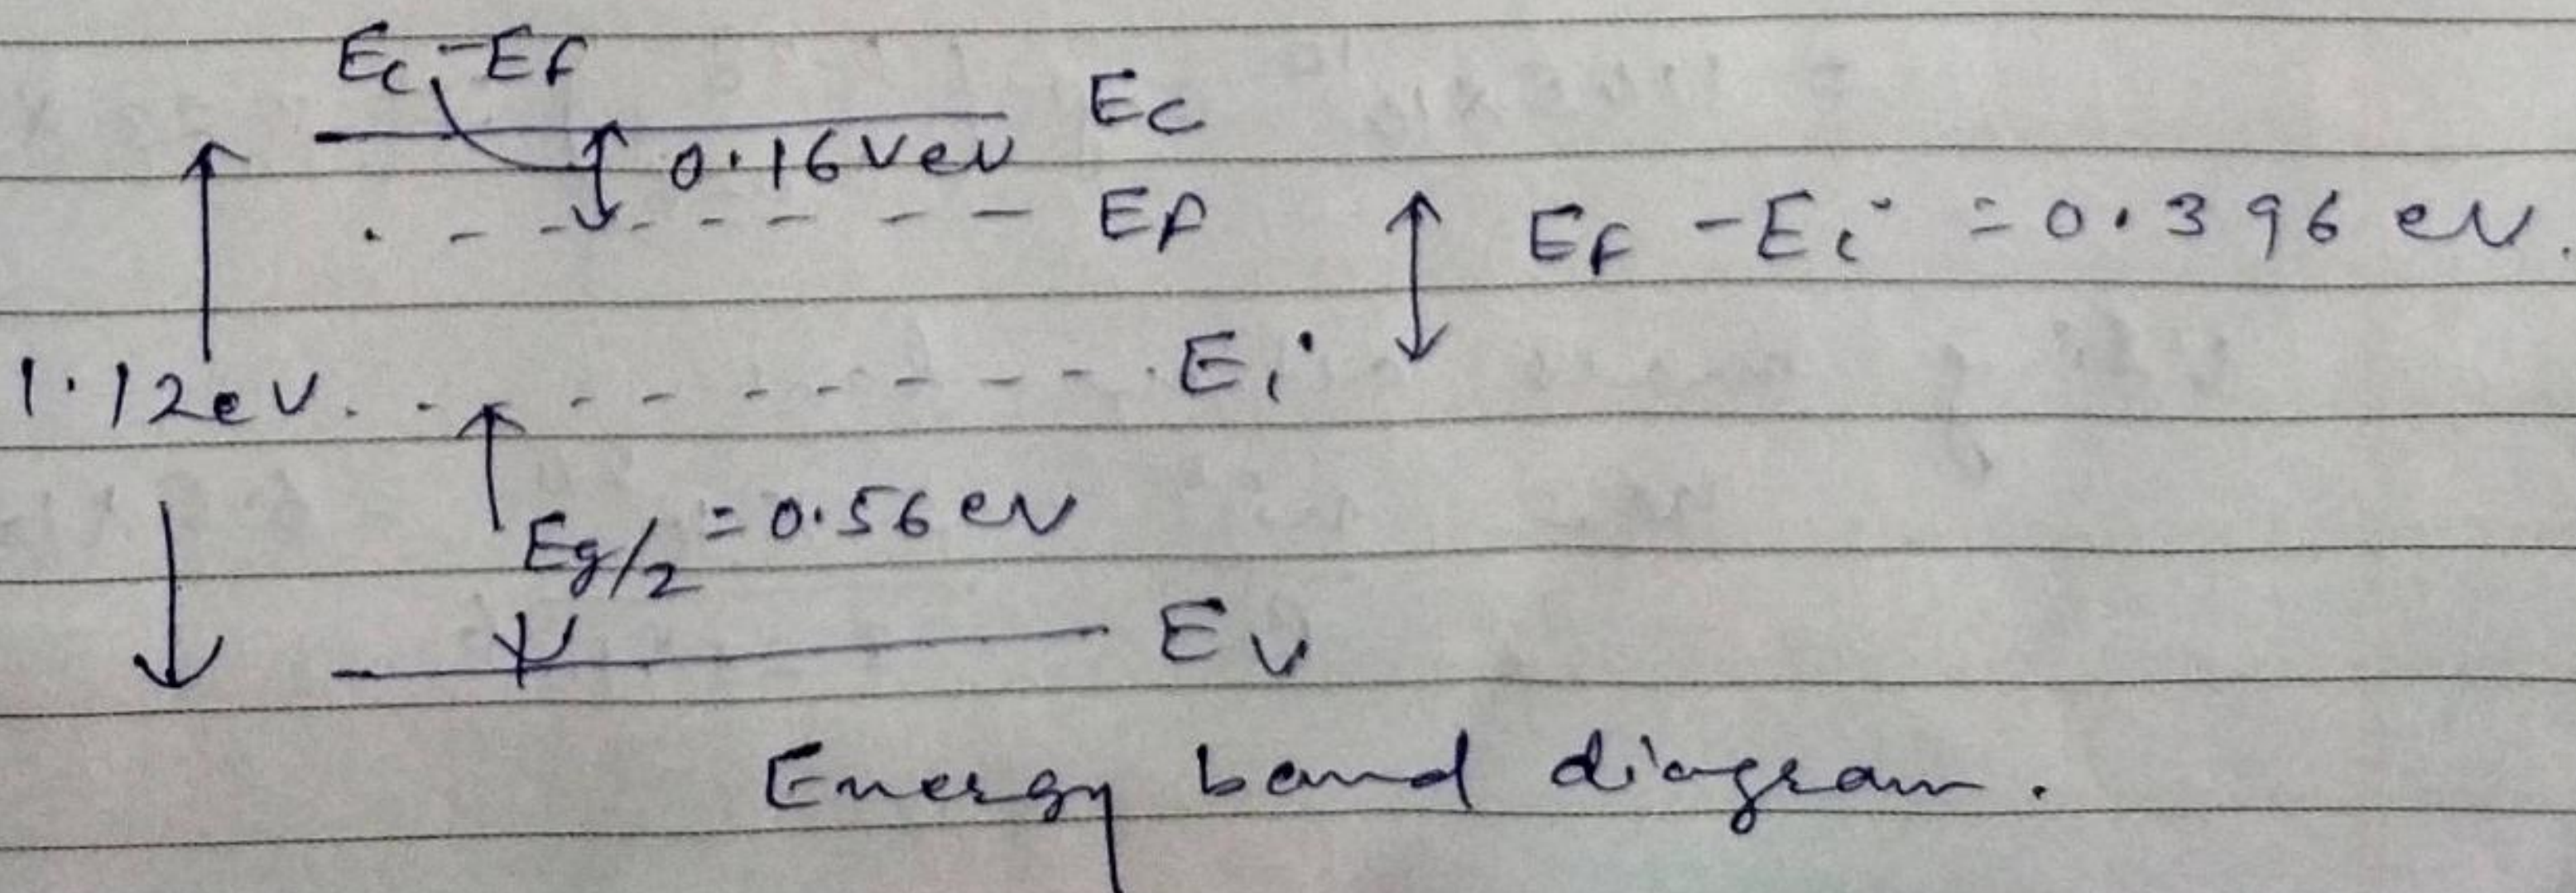 Ec - Ef
Ec
0.16Vev
Ef
EF - Ei = 0.396 ev.
1.12eV
Ei
Eg/2 = 0.56 ev
Ev
Energy band diagram.